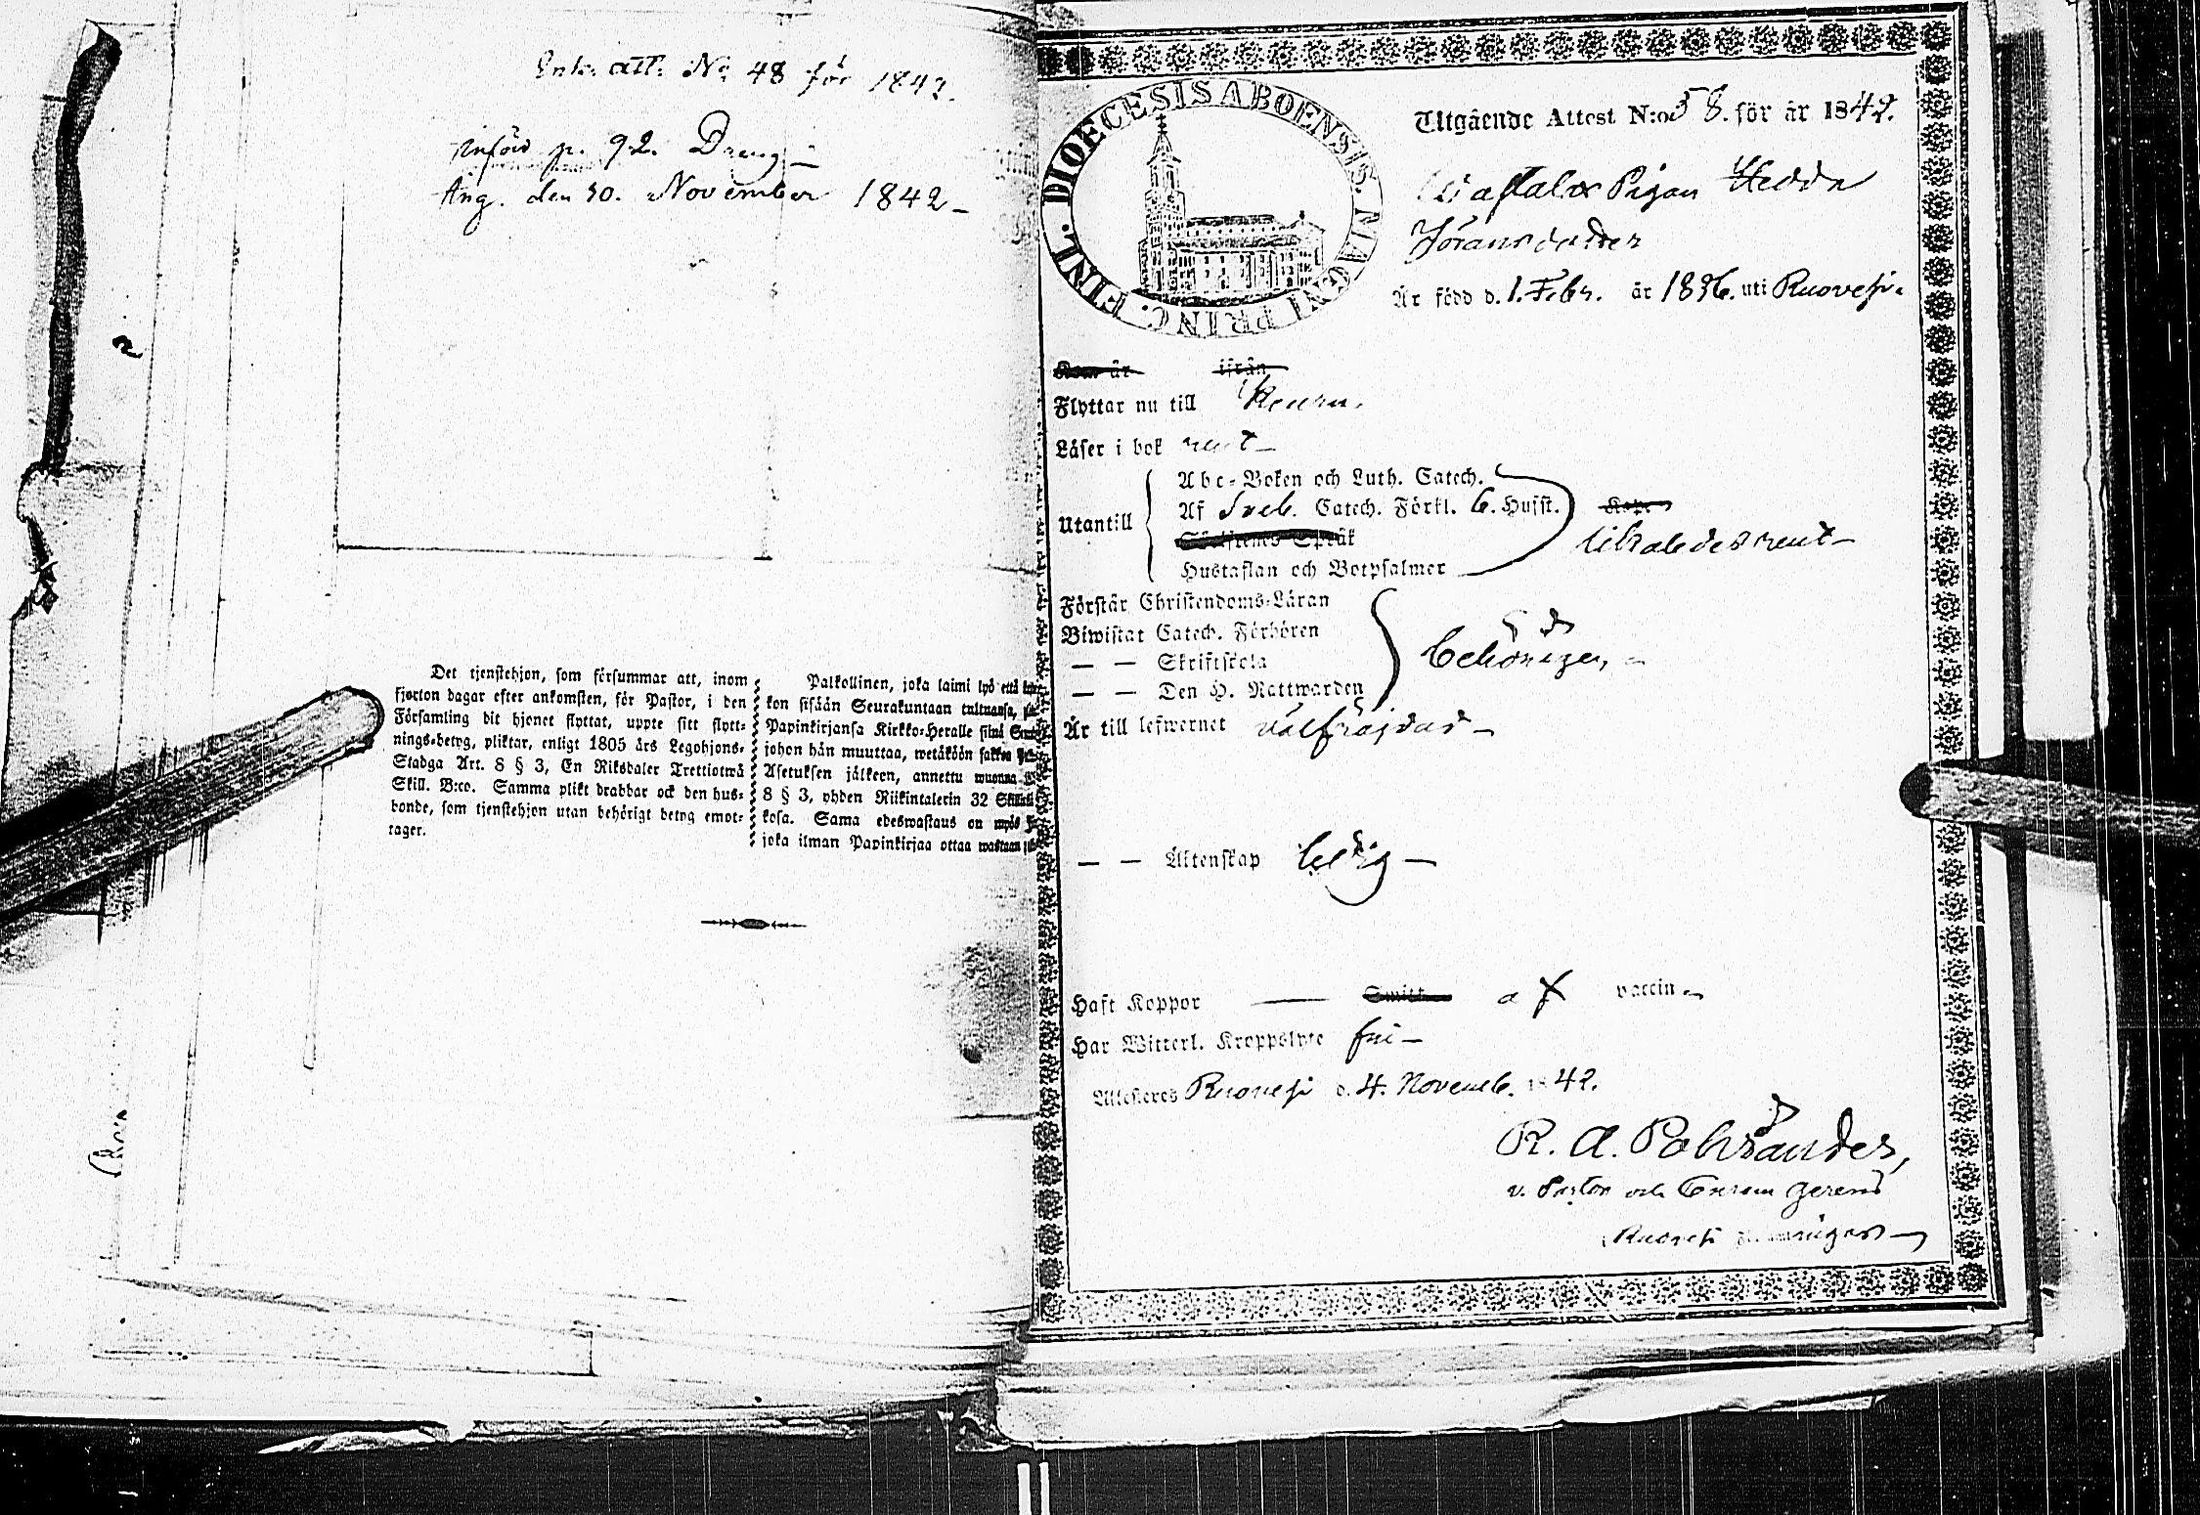 Ink. att. No 48 för 1842.
införd p. 92.
Ang. den 30. November 1842
Det tjenstehjon, som försummar att, inom
fjorton dagar efter ankomsten, för Pastor, i den
Församling dit hjonet flyttat, uppte sitt flytt-
nings-betyg, pliktar, enligt 1805 års Legohjons-
Stadga Art. 8 § 3, En Riksdaler Trettiotwå
Skill. B:co. Samma plikt drabbar ock den hus-
bonde, som tjenstehjon utan behörigt betyg emot-
tager.
Palkollinen, joka laimi lyö että
kon sisään Seurakuntaan tultuansa,
Papinkirjansa Kirkko-Heralle siinä
johon hän muuttaa, wetäköön sakkoa
Asetuksen jälkeen, annettu wuonna
8 § 3, yhden Riikintalerin 32
kosa. Sama edeswastaus on myös
joka ilman Papinkirjaa ottaa wastaan
DIOECESIS ABOENSIS. MAGNI PRINC. FINL.
Utgående Attest N:o 58. för år 1842.
Pigan Hedda
Är född d. 1. Febr. år 1826. uti Ruovesi.
Kom år ifrån
Flyttar nu till Keuru.
Läser i bok rent
Utantill
Abc-Boken och Luth. Catech.
Af Sveb. Catech. Förkl. 6. Hufst.
Språk
Hustaflan och Botpsalmer
rent
Förstår Christendoms-Läran
Biwistat Catech. Förhören
— — Skriftskola
— — Den H. Nattwarden
behörigen
Är till lefwernet välfräjdad
— — Äktenskap ledig
Haft Koppor — af vaccin
Har Witterl. Kroppslyte fri
Attesteras Ruovesi d. 4. Novemb. 1842.
R. A. Pohlander,
v. Pastor och gerens
Ruovesi